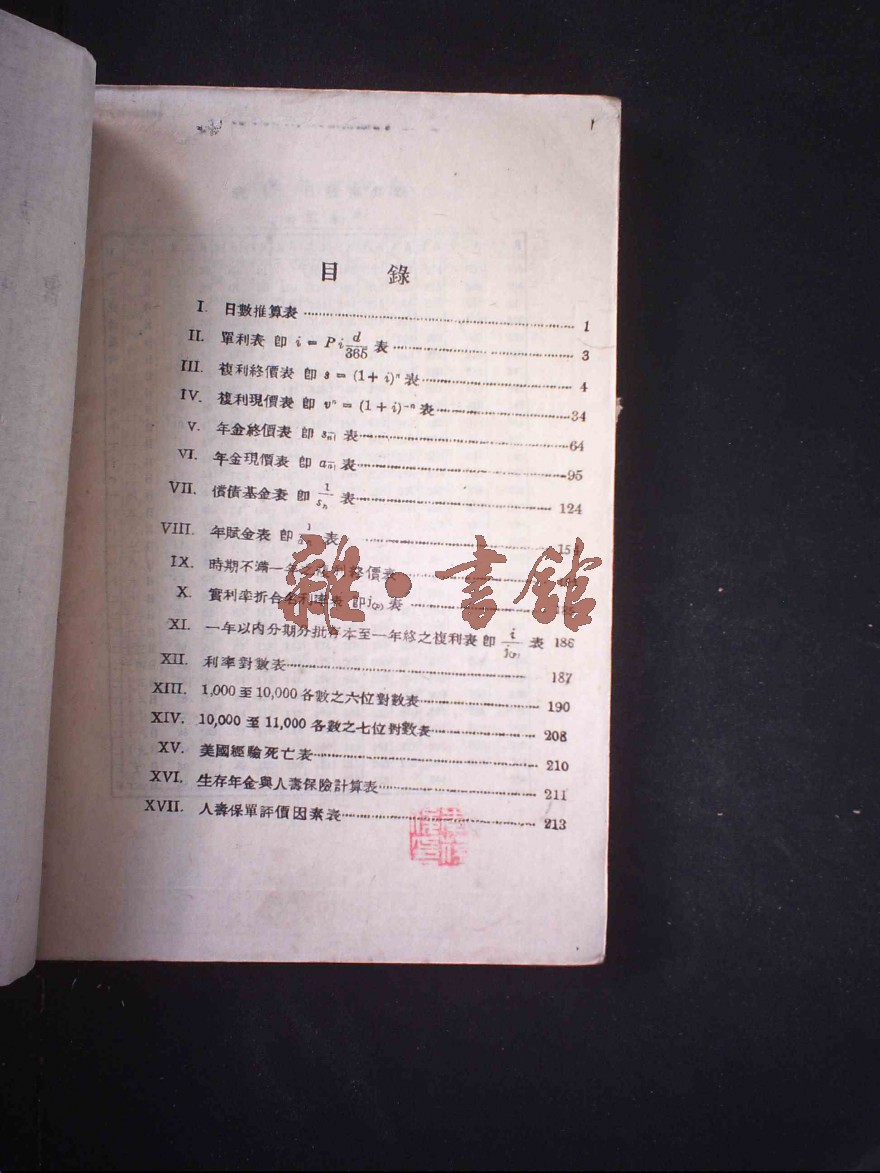 目 錄
I. 日數推算表 1
II. 單利表 卽 i = P i d/365 表 3
III. 複利終價表 卽 s = (1 + i)ⁿ 表 4
IV. 複利現價表 卽 vⁿ = (1 + i)⁻ⁿ 表 34
V. 年金終價表 卽 sn̅| 表 64
VI. 年金現價表 卽 an̅| 表 95
VII. 償債基金表 卽 1/sn̅ 表 124
VIII. 年賦金表 卽 表
IX. 時期不滿一年之複利終價表
X. 實利率折合名利率表 卽 j(p) 表
XI. 一年以內分期分批存本至一年終之複利表卽 i/j(p) 表 186
XII. 利率對數表 187
XIII. 1,000 至 10,000 各數之六位對數表 190
XIV. 10,000 至 11,000 各數之七位對數表 208
XV. 美國經驗死亡表 210
XVI. 生存年金與人壽保險計算表 211
XVII. 人壽保單評價因素表 213
雜·書館